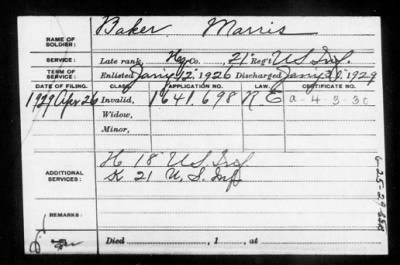 NAME OF SOLDIER: Baker Marris
SERVICE: Late rank, Hq Co. 21" Reg't US Inf.
TERM OF SERVICE: Enlisted Jany 12, 1926 Discharged Jany 1929
DATE OF FILING. CLASS. APPLICATION NO. LAW. CERTIFICATE NO.
1929 Apr 26 Invalid, 1641,698 N E a-4-3-30
Widow,
Minor,
ADDITIONAL SERVICES: H 18 US Inf
K 21 U.S. Inf
REMARKS:
Died , 1 , at